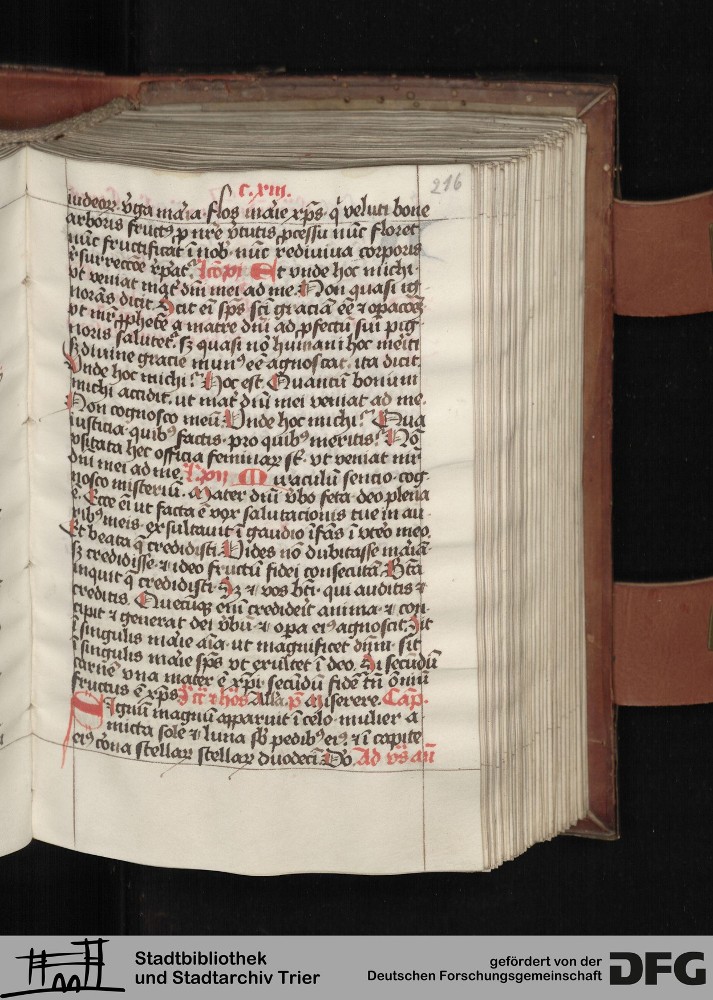 c. xiii.
216
iudeoꝝ. v̓ga maͬia. flos maͬie xp̄s. qͥ veluti bone
arboris fructꝰ, p nr̄e v̓tutis ꝓcessu nūc floret
nūc fructificat ī nob̓. nūc rediviva corporis
Et vnde hoc michi.
vt veniat mat̓ dn̄i mei ad me. Non quasi ig
norās dicit. Scit ei̅ sp̄s sc̄i graciā eē ⁊ oꝑacōꝫ
vt mr̄ ꝓphetē a matre dn̄i ad ꝓfectū sui pig
noris salutet̓. sꝫ quasi nō humani hoc meͥti
sꝫ divine gracie munꝰ eē agnoscat. ita dicit.
Vnde hoc michi. Hoc est. Quantū bonum
michi accidit. ut mat̓ dn̄i mei veniat ad me.
Non cognosco meū. Vnde hoc michi. Qua
iusticia. quibꝰ factis. pro quibꝰ meritis. Nō
vsitata hec officia feminaꝝ st̄. vt veniat mr̄
dn̄i mei ad me. Miraculū sencio. cog
nosco misteriū. Mater dn̄i v̓bo feta. deo plena
ē. Ecce ei̅ ut facta ē vox salutacionis tue in au
ribꝰ meis. exsultauit ī gaudio īfās ī vteͦ meo.
Et beata q̄ credidisti. Vides nō dubitasse maͬiā.
sꝫ credidisse. ⁊ ideo fructū fidei consecutā. Bt̄a
inquit q̄ credidisti. Sꝫ ⁊ vos bt̄i. qui auditis ⁊
creditis. Quecūqꝫ eni̅ credideͥt anima. ⁊ con
cipit ⁊ generat dei v̓bū. ⁊ oꝑa eiꝰ agnoscit. Sit
ī singulis maͬie aı̅a. ut magnificet dn̄m. sit
ī singulis maͬie sp̄s vt exultet ī deo. Si secūdū
carnē vna mater ē xp̄i. secūdū fidē tn̄ oı̅niū
fructus ē xp̄s. Miserere. Cap̄.
Signū magnū apparuit ī celo. mulier a
micta sole ⁊ luna sb̓ pedibꝰ eiꝰ. ⁊ ī capite
eiꝰ coͦna stellaꝝ stellaꝝ duodeci̅. Ad vs̄ an̄
Stadtbibliothek
und Stadtarchiv Trier
gefördert von der
Deutschen Forschungsgemeinschaft
DFG